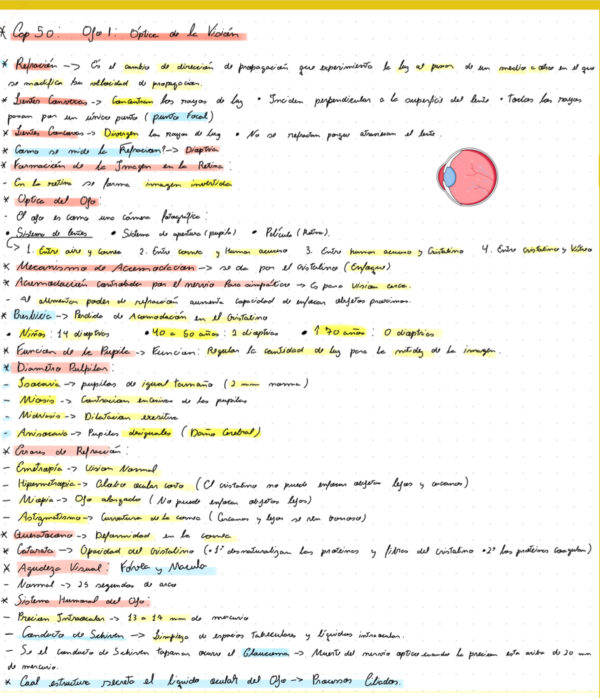 * Cap 50: Ojo 1: Óptica de la Visión
* Refracción --> Es el cambio de dirección de propagación que experimenta la luz al pasar de un medio a otro en el que
se modifica su velocidad de propagación.
* Lentes Convexas --> Concentran los rayos de luz • Inciden perpendicular a la superficie del lente • Todos los rayos
pasan por un único punto (punto Focal)
* Lentes Concavas --> Divergen los rayos de luz • No se refractan porque atraviesan el lente.
* Como se mide la Refracion? --> Dioptria
* Formación de la Imagen en la Retina:
- En la retina se forma imagen invertida
* Optica del Ojo:
- El ojo es como una cámara fotográfica:
• Sistema de lentes • Sistema de apertura (pupila) • Película (Retina).
↳ 1. Entre aire y cornea 2. Entre cornea y Humor acuoso 3. Entre humor acuoso y Cristalino 4. Entre cristalino y Vítreo
* Mecanismo de Acomodacion --> se da por el cristalino (Enfoque)
* Acomodación Controlada por el nervio Para simpático --> Es para Vision cerca.
- Al poder de refracción aumenta capacidad de enfocar objetos proximos.
* Presbicia --> Perdida de Acomodación en el Cristalino
• Niños: 14 dioptrias • 40 a 50 años: 2 dioptrias • ↑ 70 años: 0 dioptrias
* Funcion de la Pupila --> Funcion: Regular la cantidad de luz para la nitidez de la imagen.
* Diametro Pulpilar:
- Isocoria --> pupilas de igual tamaño (2 mm norma)
- Miosis --> Contracion excesiva de las pupilas
- Midriasis --> Dilatacion excesiva
- Anisocoria --> Pupilas desiguales (Daño Cerebral)
* Errores de Refracción:
- Emetropía --> Vision Normal
- Hipermetropia --> Globo ocular corto (El cristalino no puede enfocar objetos lejos y cercanos)
- Miopia --> Ojo alargado (No puede enfocar objetos lejos)
- Astigmatismo --> Curvatura de la cornea (Cercanos y lejos se ven borroso)
* Queratocono --> Deformidad en la cornea
* Catarata --> Opacidad del Cristalino (•1° desnaturalizan las proteinas y fibras del cristalino •2° las proteinas coagulan)
* Agudeza Visual: Fóvela y Macula
- Normal --> 25 segundos de arco
* Sistema Humoral del Ojo:
- Presion Intraocular --> 12 a 14 mm de mercurio
- Conducto de Schlren --> Limpieza de espacios Tableculares y liquidos intraocular.
- Se el conducto de Schiren taponar ocurre el Glaucoma --> Muerte del nervio optico cuando la presion esta arriba de 20 mm
de mercurio.
* Cual estructura secreta el liquido ocular del Ojo --> Procesos Ciliados.